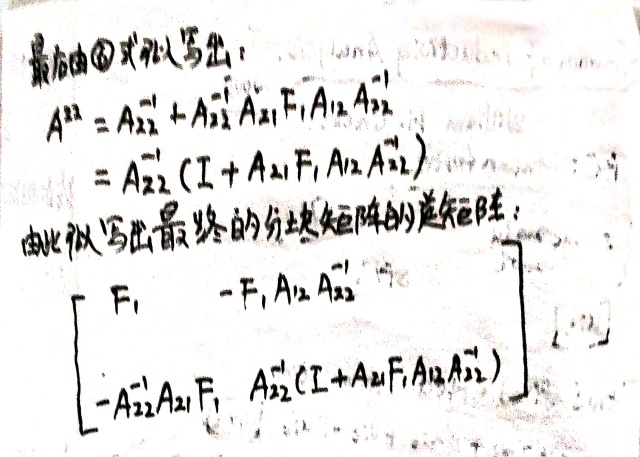 最后由⑥式可以写出：
A²² = A₂₂⁻¹ + A₂₂⁻¹ A₂₁ F₁ A₁₂ A₂₂⁻¹
= A₂₂⁻¹ (I + A₂₁ F₁ A₁₂ A₂₂⁻¹)
由此可以写出最终的分块矩阵的逆矩阵：
F₁ -F₁ A₁₂ A₂₂⁻¹
-A₂₂⁻¹ A₂₁ F₁ A₂₂⁻¹ (I + A₂₁ F₁ A₁₂ A₂₂⁻¹)